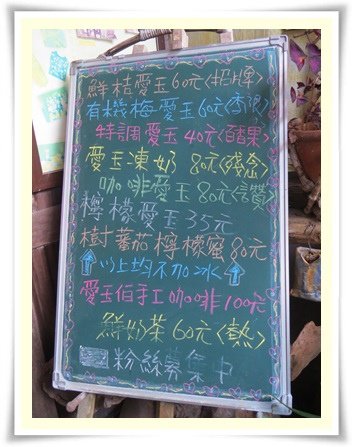 鮮桔愛玉60元<招牌>
有機梅愛玉60元<季限>
特調愛玉40元<百香果>
愛玉凍奶 80元<殘念>
咖啡愛玉80元<讚>
檸檬愛玉35元
樹蕃茄檸檬蜜80元
↑以上均不加冰↑
愛玉伯手工咖啡100元
鮮奶茶60元<熱>
粉絲募集中